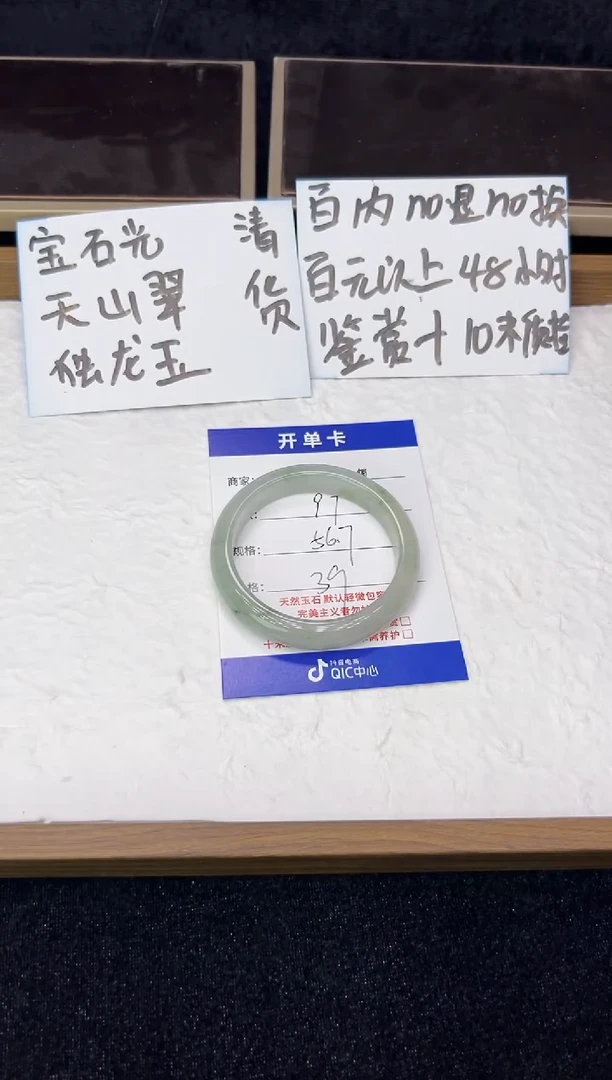 宝石光 清
天山翠 货
独龙玉
百内no退no换
百元以上48小时
鉴赏+10米质检
开单卡
商家:
97
规格: 56.7
格: 39
天然玉石 默认轻微包容
完美主义者勿
养护
抖音电商
QIC中心